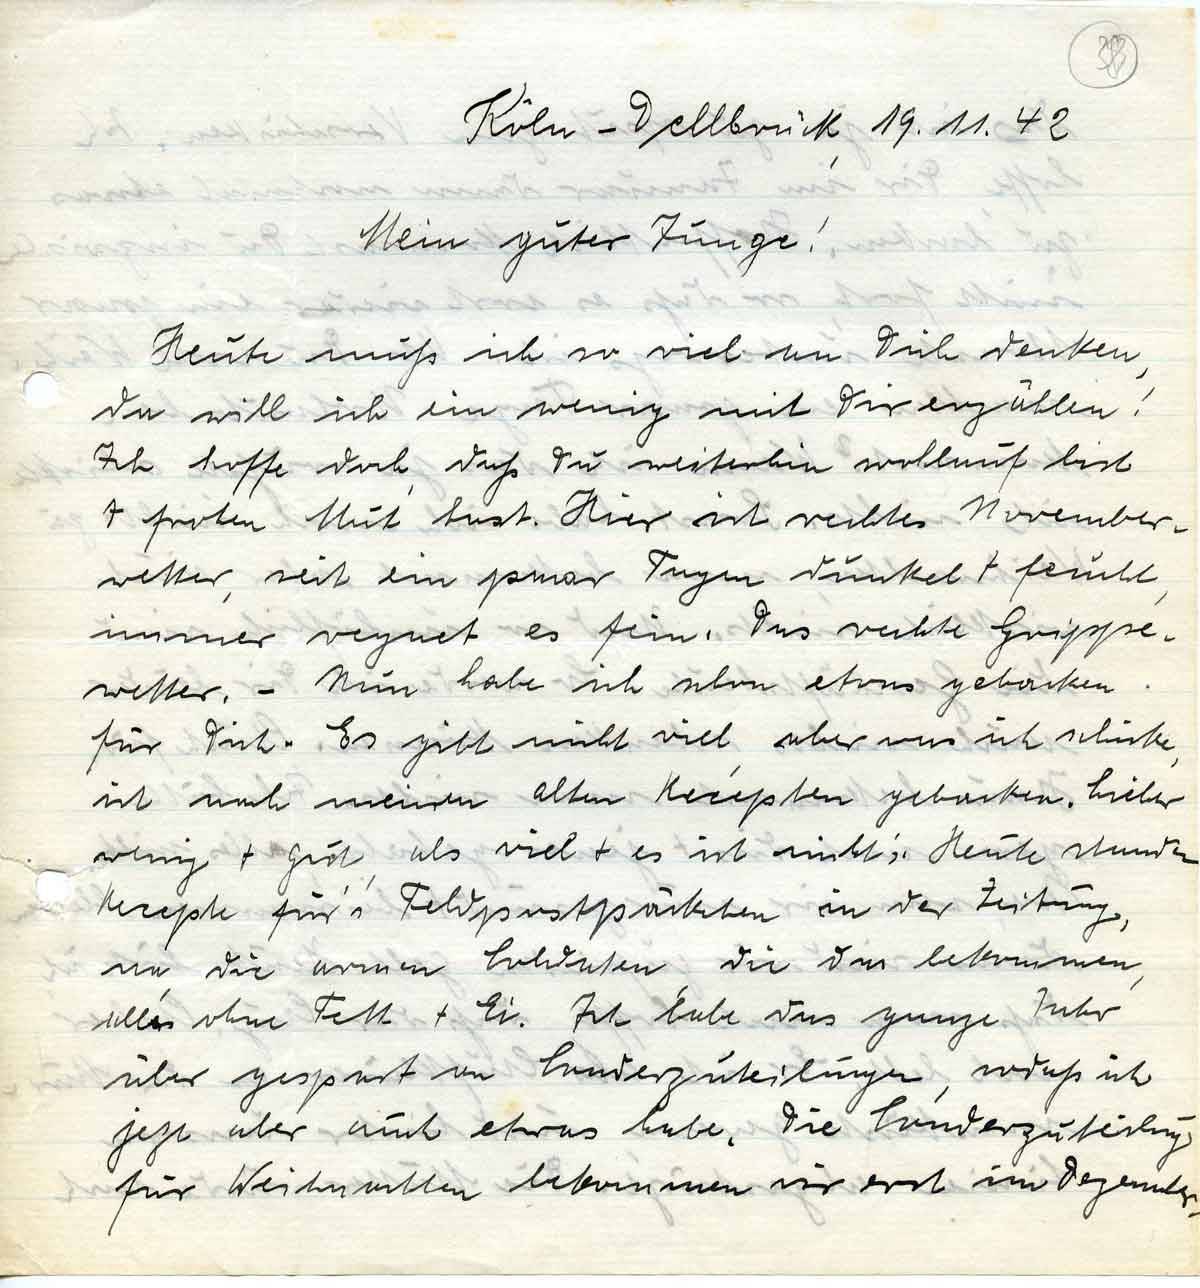 38
Köln - Dellbrück, 19. 11. 42
Mein guter Junge!
Heute muß ich so viel an Dich denken,
da will ich ein wenig mit Dir erzählen!
Ich hoffe doch, daß Du weiterhin wohlauf bist
+ frohen Mut hast. Hier ist rechtes November-
wetter, seit ein paar Tagen dunkel + feucht,
immer regnet es fein. Das rechte Grippe-
wetter. - Nun habe ich schon etwas gebacken
für Dich. Es gibt nicht viel, aber was ich schicke,
ist nach meinen alten Recepten gebacken. Lieber
wenig + gut, als viel + es ist nicht's. Heute standen
Recepte für's Feldpostpäckchen in der Zeitung,
na, die armen Soldaten, die das bekommen,
alles ohne Fett + Ei. Ich habe das ganze Jahr
über gespart an Sonderzuteilungen, sodaß ich
jetzt aber auch etwas habe. Die Sonderzuteilung
für Weihnachten bekommen wir erst im Dezember,